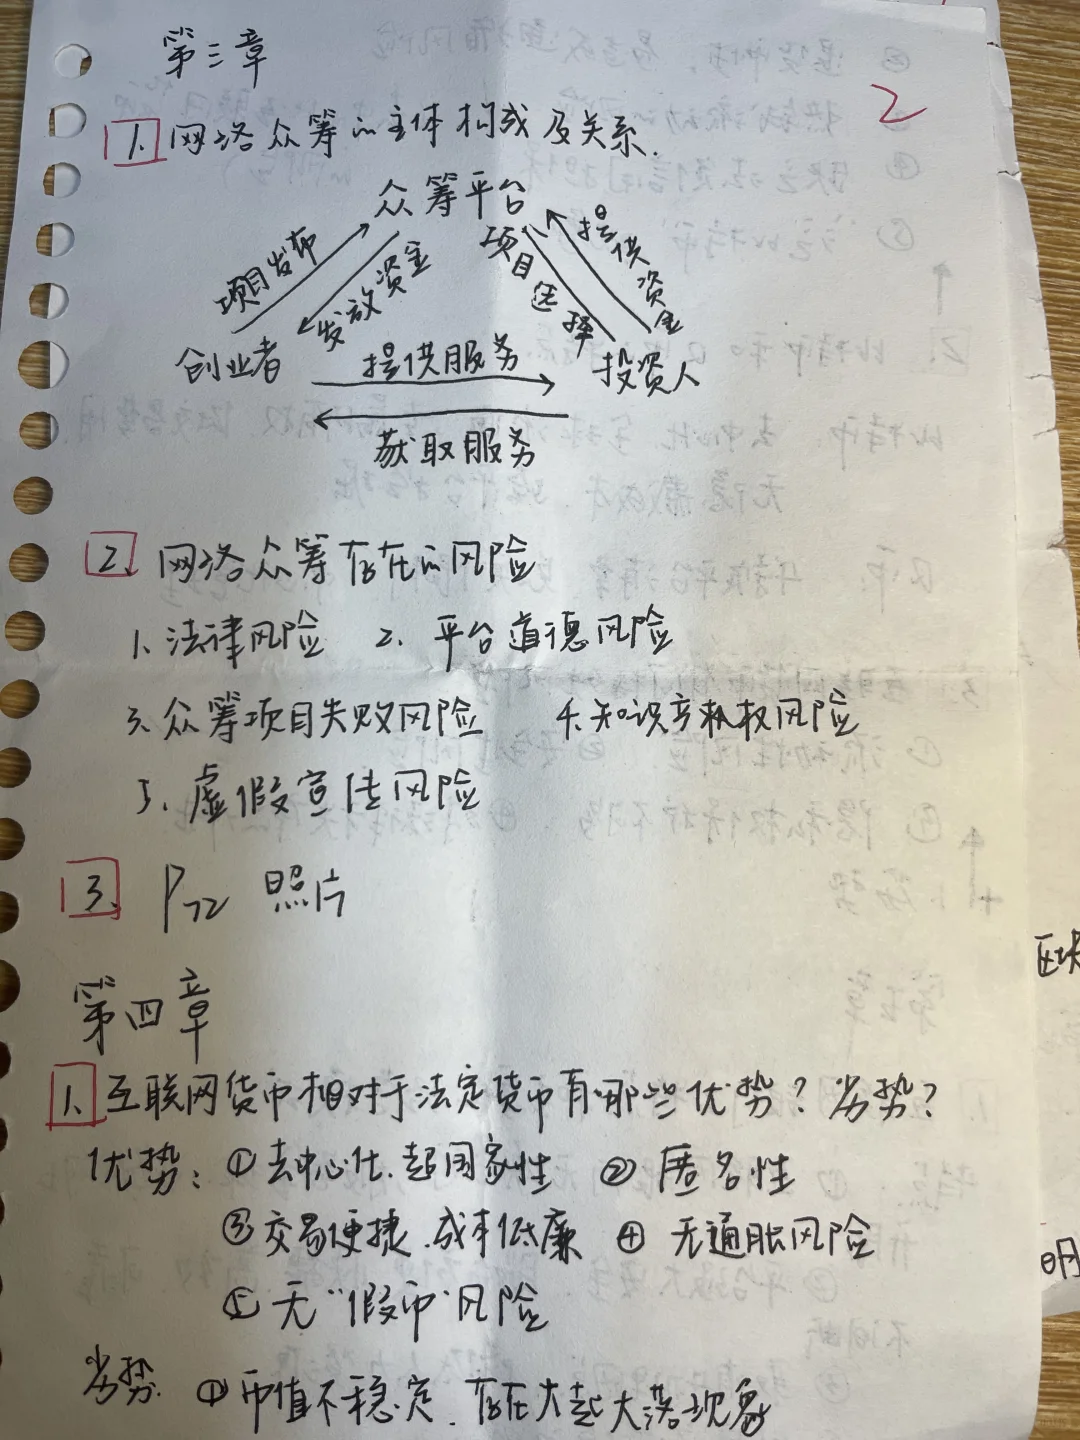 第三章
2
1. 网络众筹的主体构成及关系.
众筹平台
项目发布
发放资金
项目选择
提供资金
创业者
提供服务
投资人
获取服务
2. 网络众筹存在的风险
1. 法律风险 2. 平台道德风险
3. 众筹项目失败风险 4. 知识产权风险
5. 虚假宣传风险
3. P72 照片
第四章
1. 互联网货币相对于法定货币有哪些优势? 劣势?
优势: ①去中心化.超国家性 ②匿名性
③交易便捷.成本低廉 ④ 无通胀风险
⑤ 无"假币"风险
劣势. ①币值不稳定.存在大起大落现象
区块
明